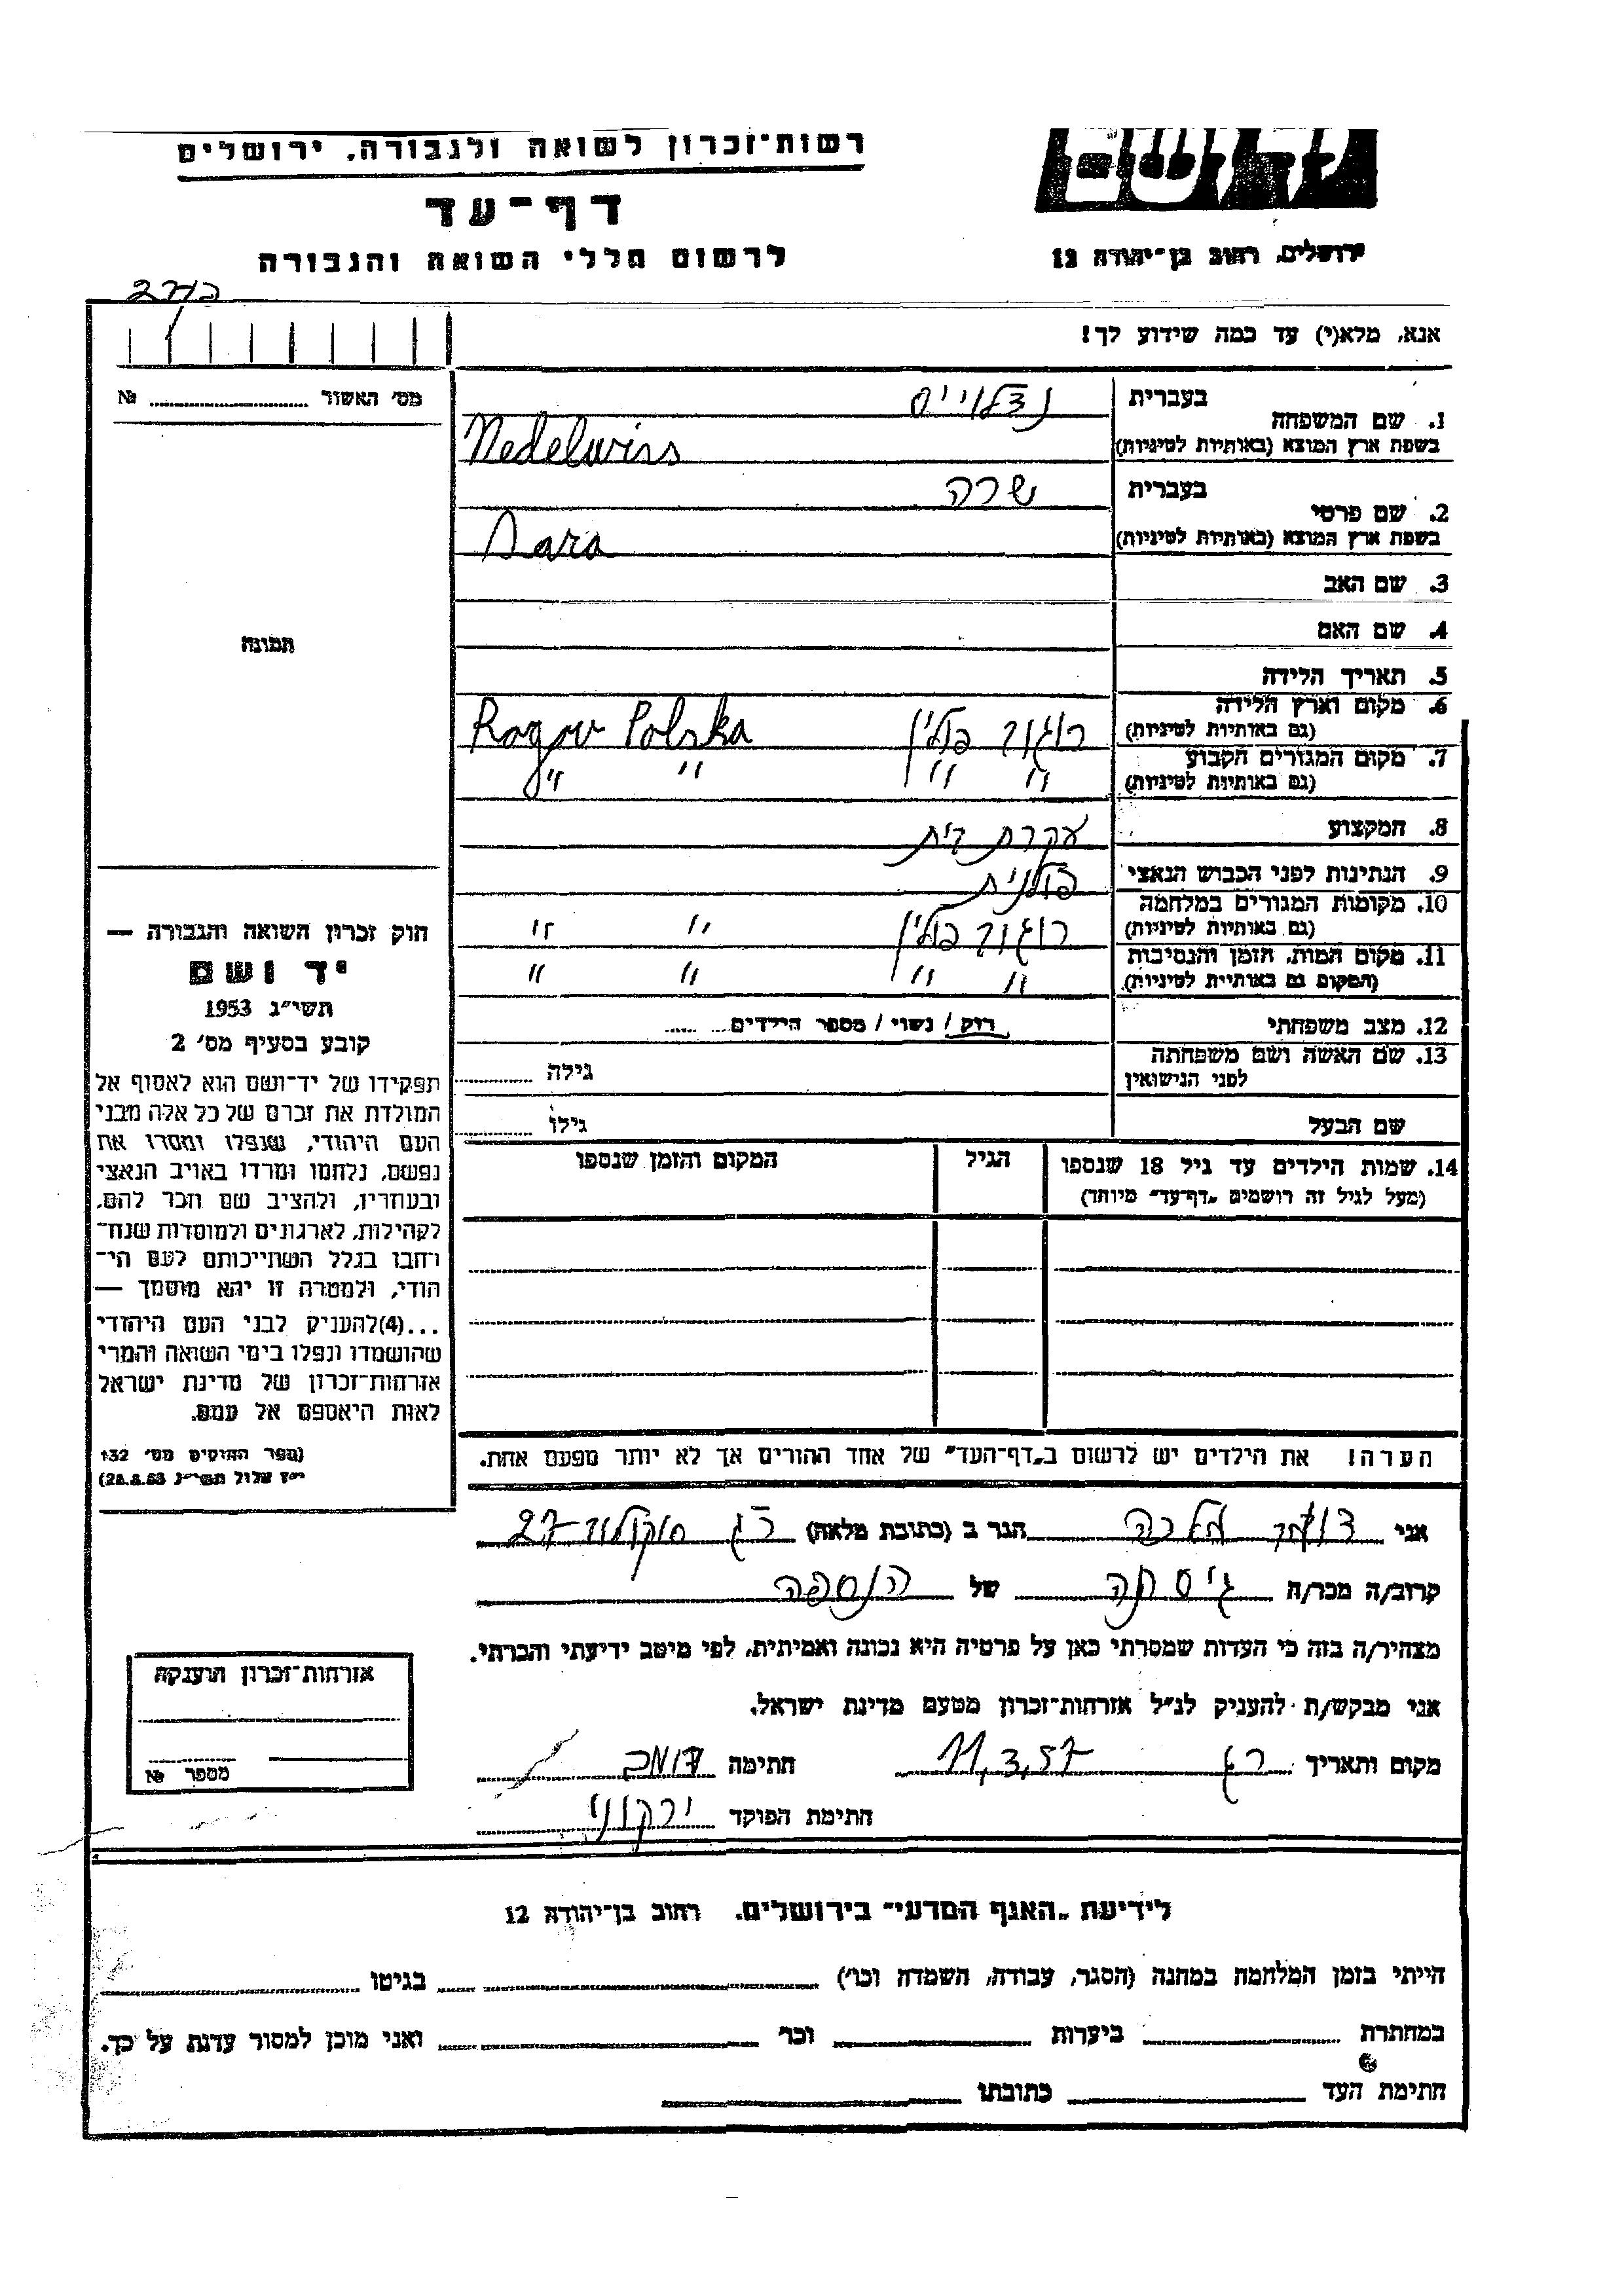 רשות־זכרון לשואה ולגבורה, ירושלים
דף־עד
לרשום חללי השואה והגבורה
ירושלים, רחוב בן־יהודה 12
אנא, מלא(י) עד כמה שידוע לך!
מס' האשור № ........
בעברית נדלוייס
1. שם המשפחה
בשפת ארץ המוצא (באותיות לטיניות) Nedelwiss
בעברית שרה
2. שם פרטי
בשפת ארץ המוצא (באותיות לטיניות) Sara
3. שם האב
4. שם האם
תמונה
5. תאריך הלידה
6. מקום וארץ הלידה
(גם באותיות לטיניות) רוגוב פולין Rogow Polska
7. מקום המגורים הקבוע
(גם באותיות לטיניות) " " " "
8. המקצוע עקרת בית
9. הנתינות לפני הכבוש הנאצי פולנית
10. מקומות המגורים במלחמה
(גם באותיות לטיניות) רוגוב פולין " "
11. מקום המות, הזמן והנסיבות
(המקום גם באותיות לטיניות) " " " "
12. מצב משפחתי רוק / נשוי / מספר הילדים........
13. שם האשה ושם משפחתה
לפני הנישואין גילה ........
שם הבעל גילו ........
14. שמות הילדים עד גיל 18 שנספו
(מעל לגיל זה רושמים "דף־עד" מיוחד)
הגיל
המקום והזמן שנספו
חוק זכרון השואה והגבורה —
יד ושם
תשי"ג 1953
קובע בסעיף מס' 2
תפקידו של יד־ושם הוא לאסוף אל
המולדת את זכרם של כל אלה מבני
העם היהודי, שנפלו ומסרו את
נפשם, נלחמו ומרדו באויב הנאצי
ובעוזריו, ולהציב שם וזכר להם,
לקהילות, לארגונים ולמוסדות שנח־
רבו בגלל השתייכותם לעם הי־
הודי, ולמטרה זו יהא מוסמך —
...(4)להעניק לבני העם היהודי
שהושמדו ונפלו בימי השואה והמרי
אזרחות־זכרון של מדינת ישראל
לאות היאספם אל עמם.
(ספר החוקים מס' 132
י"ז אלול תשי"ג 28.8.53)
הערה! את הילדים יש לרשום ב"דף־העד" של אחד ההורים אך לא יותר מפעם אחת.
אני מלכה הגר ב (כתובת מלאה) רג סוקולוב 27
קרוב/ה מכר/ה גיסתה של הנספה
מצהיר/ה בזה כי העדות שמסרתי כאן על פרטיה היא נכונה ואמיתית, לפי מיטב ידיעתי והכרתי.
אני מבקש/ת להעניק לנ"ל אזרחות־זכרון מטעם מדינת ישראל.
מקום ותאריך רג 11,3,57 חתימה
חתימת הפוקד ירקוני
אזרחות־זכרון הוענקה
מספר №
לידיעת "האגף המדעי" בירושלים, רחוב בן־יהודה 12
הייתי בזמן המלחמה במחנה (הסגר, עבודה, השמדה וכו') ........ בגיטו ........
במחתרת ........ ביערות ........ וכו' ........ ואני מוכן למסור עדות על כך.
חתימת העד ........ כתובתו ........